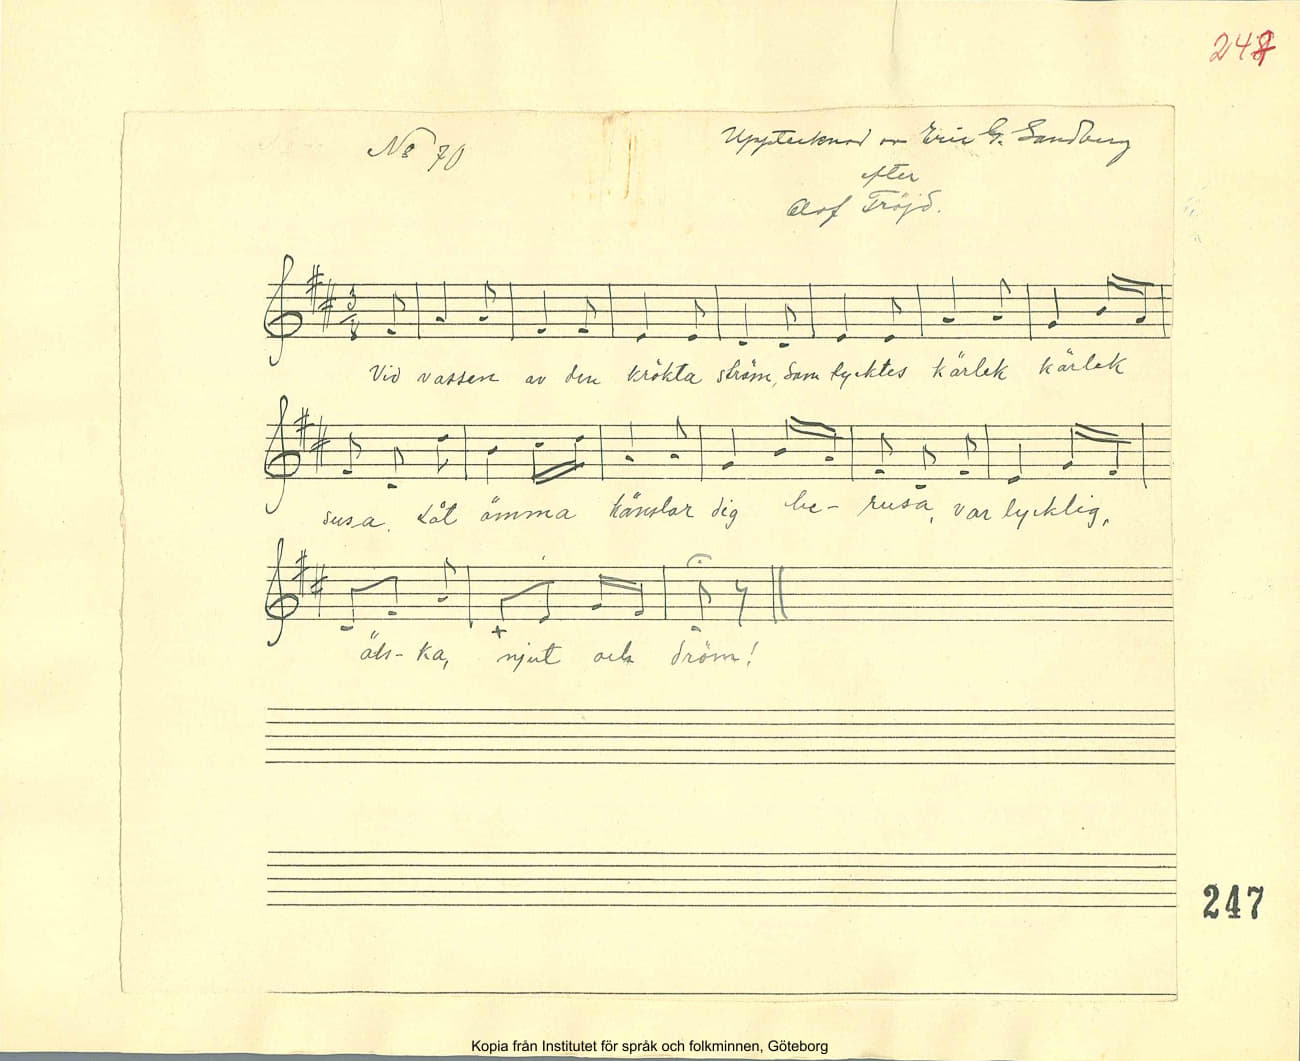 247
No 70
Upptecknad av Eric G. Sandberg
efter
Olof Tröjd.
3
8
Vid vassen av den krökta ström, Som lycktes kärlek kärlek
susa. Låt ömma känslor dig be- rusa, var lycklig,
äls- ka, njut och dröm!
247
Kopia från Institutet för språk och folkminnen, Göteborg